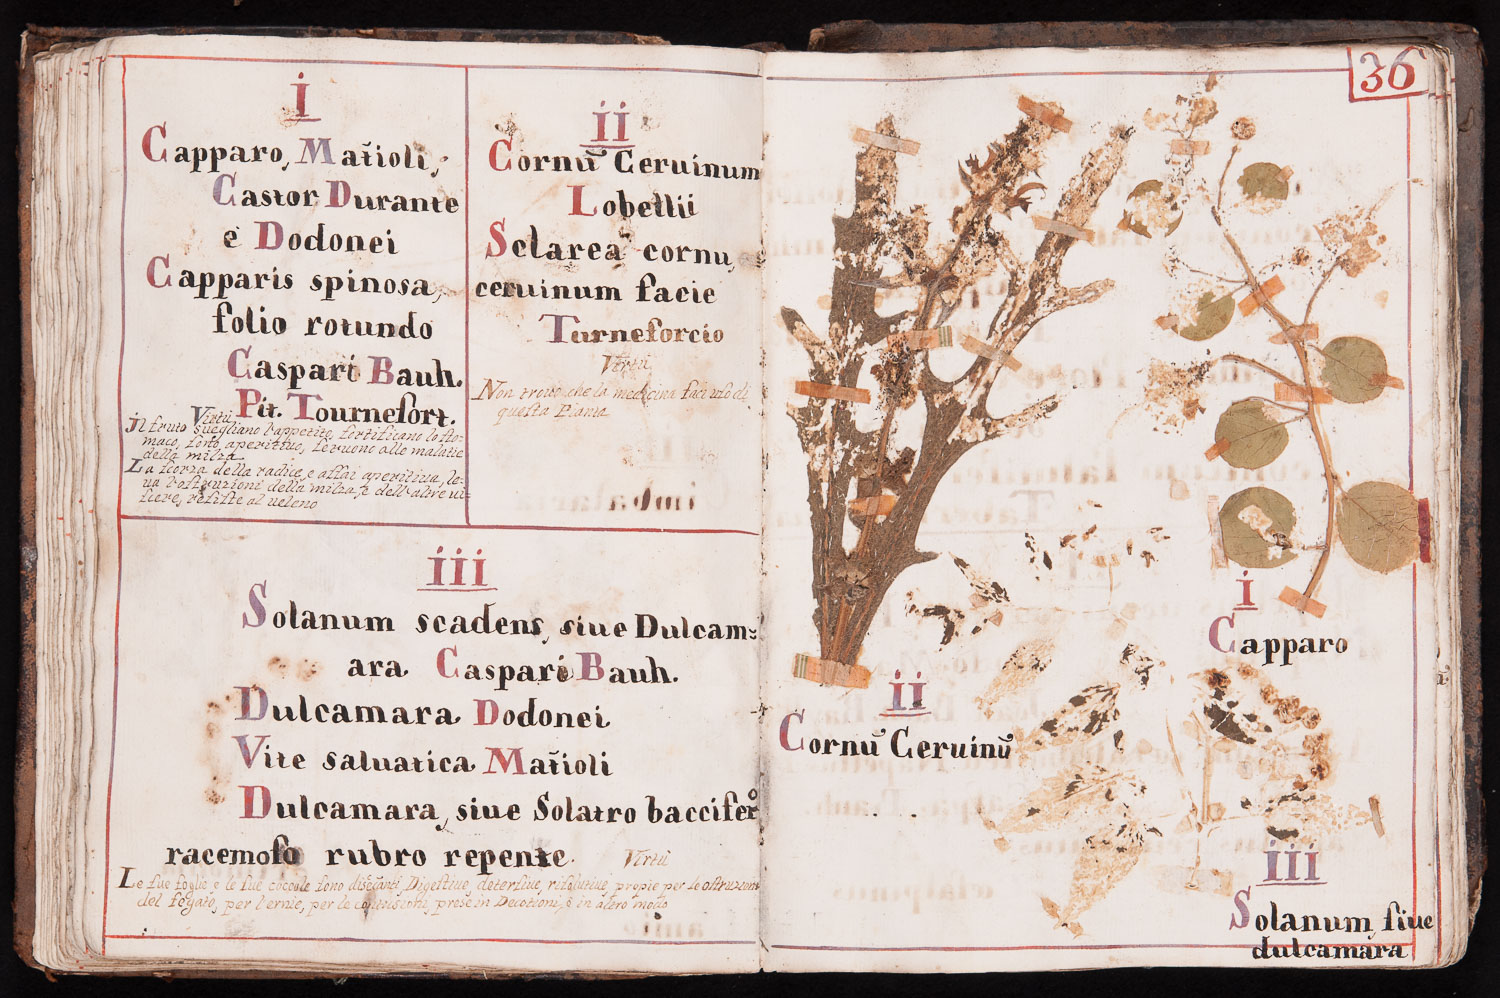 i
Capparo, Matioli,
Castor Durante
e Dodonei
Capparis spinosa,
folio rotundo
Caspari Bauh.
Pit. Tournefort.
Virtù
il fruto suegliano l'appetite, fortificano lo sto-
maco, sono aperitiue, seruono alle malatie
della milza
La scorza della radice, e assai aperitiua, le-
ua l'ostruzioni della milza, e dell'altre ui-
scere, resiste al ueleno
ii
Cornũ Ceruinum
Lobellii
Sclarea cornu
ceruinum facie
Turneforcio
Virtù
Non trouo, che la medicina faci uso di
questa Pianta
iii
Solanum scadens, siue Dulcam=
ara Caspari Bauh.
Dulcamara Dodonei
Vite saluatica Matioli
Dulcamara, siue Solatro baccifero
racemoso rubro repente.
Virtù
Le sue foglie e le sue coccole sono disecanti, Digestiue, detersiue, risolutiue, propie per le ostruzioni
del fegato, per l'ernie, per le contusioni, prese in Decotioni, ò in altro modo
36
i
Capparo
ii
Cornũ Ceruinũ
iii
Solanum siue
dulcamara